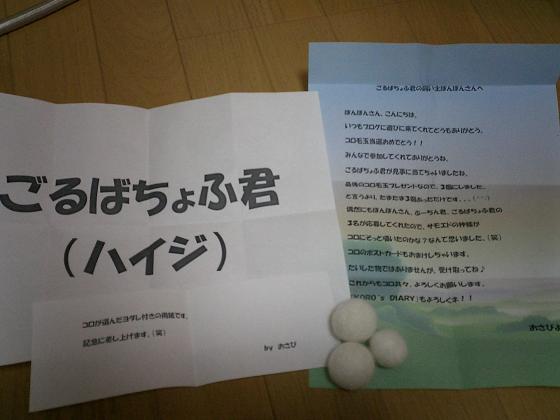 ごるばちょふ君
（ハイジ）
コロが選んだヨダレ付きの用紙です。
記念に差し上げます。（笑）
by おさび
ごるばちょふ君の飼い主ぽんぽんさんへ
ぽんぽんさん、こんにちは。
いつもブログに遊びに来てくれてどうもありがとう。
コロ毛玉当選おめでとう！！
みんなで参加してくれてありがとうね。
ごるばちょふ君が見事に当てちゃいましたね。
最後のコロ毛玉プレゼントなので、3個にしました。
と言うより、たまたま3個あっただけです．．．(^^;)
偶然にもぽんぽんさん、ぷーちん君、ごるばちょふ君の
3名が応募してくれたので、サモエドの神様が
コロにそっと囁いたのかな？なんて思いました。（笑）
コロのポストカードもおまけしちゃいます。
たいした物ではありませんが、受け取ってね♪
これからもコロ共々、よろしくお願いします。
「KORO's DIARY」もよろしくネ！！
おさびよ